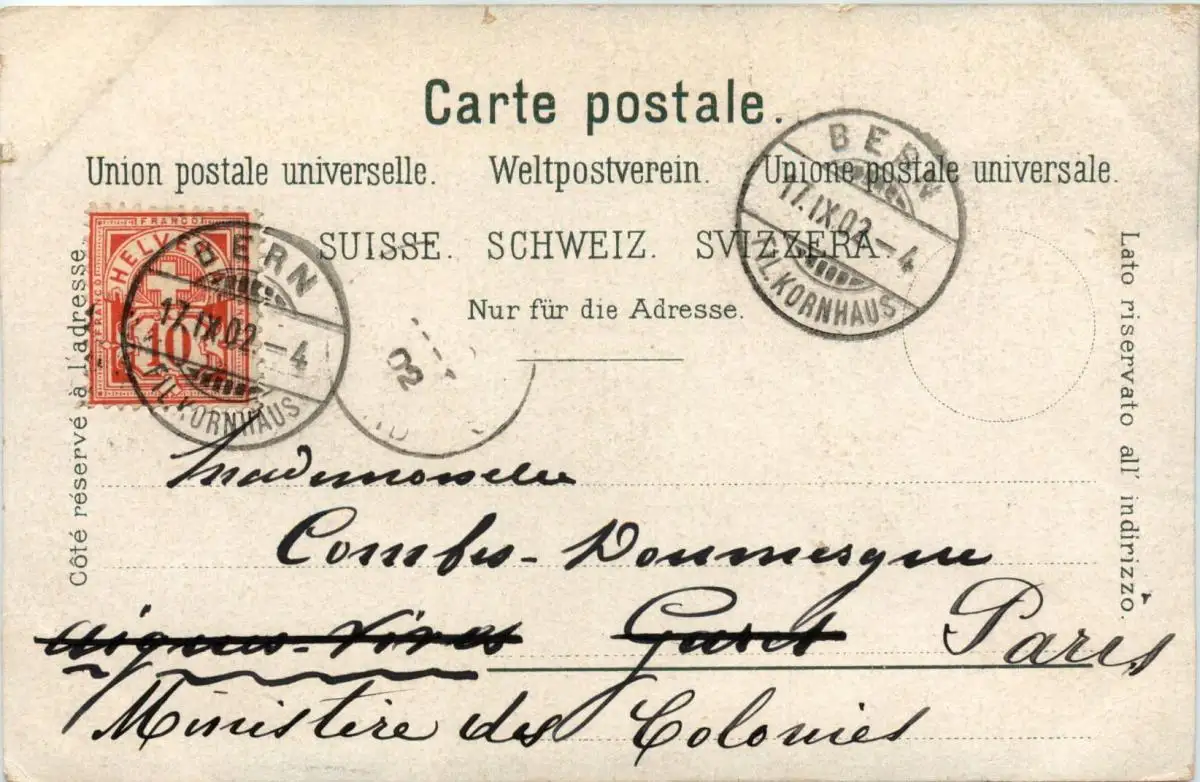 Carte postale.
Union postale universelle. Weltpostverein. Unione postale universale.
SUISSE. SCHWEIZ. SVIZZERA.
Nur für die Adresse.
Côté réservé à l'adresse.
Lato riservato all' indirizzo.
FRANCO
HELVETIA
10
BERN
17.IX.02.-4
FIL.KORNHAUS
BERN
17.IX.02.-4
FIL.KORNHAUS
02
Mademoiselle
Combes-Doumergue
Aigues-Vives Gard Paris
Ministère des Colonies